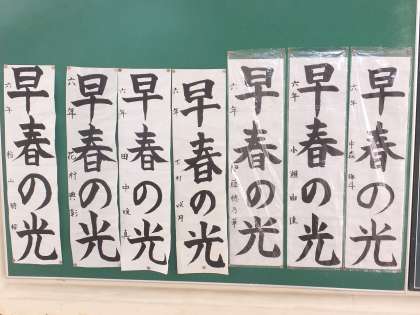 早春の光
六年
早春の光
六年 小
早春の光
六年
早春の光
六年
早春の光
六年 田中
早春の光
六年 花村
早春の光
六年